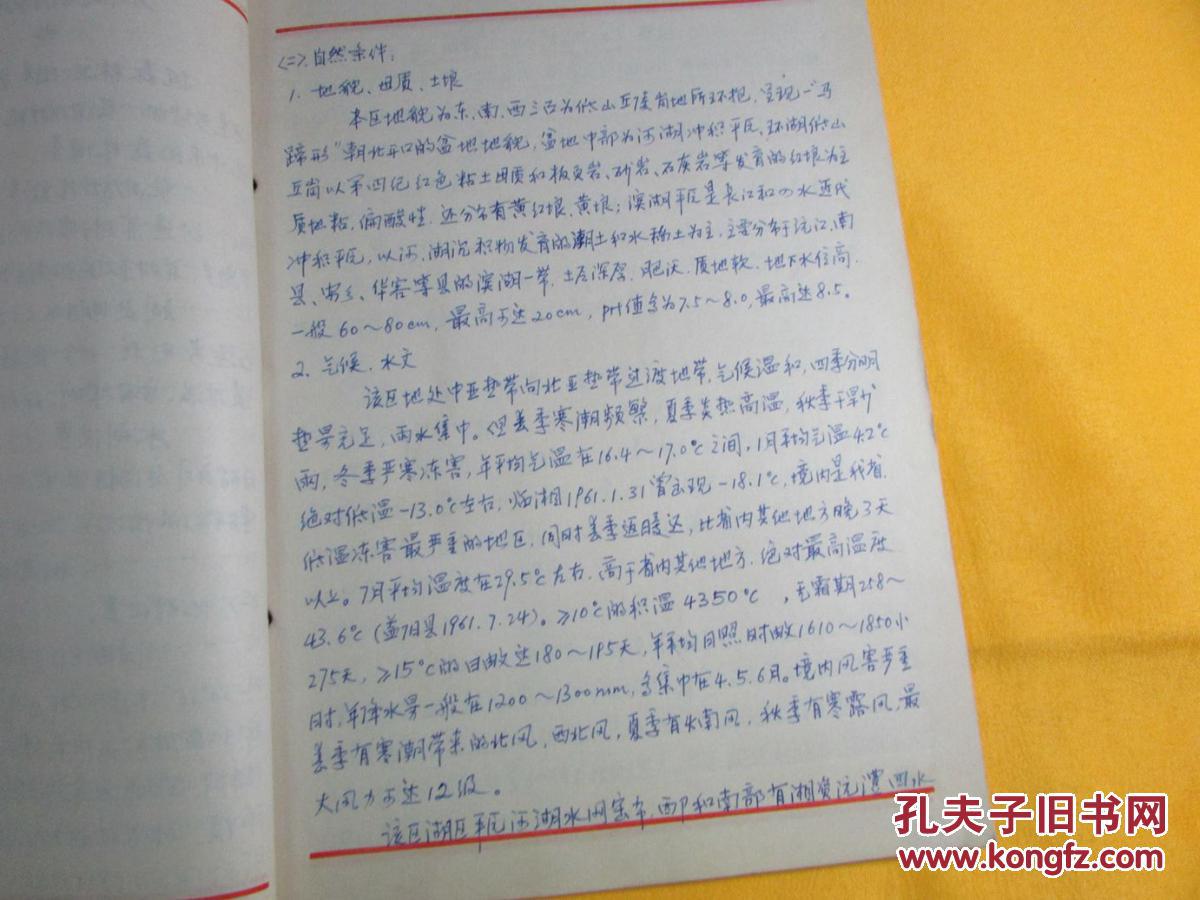 <二>、自然条件:
1. 地貌、母质、土壤
本区地貌为东、南、西三面为低山丘陵岗地所环抱,呈现一"马
蹄形"朝北开口的盆地地貌,盆地中部为河湖冲积平原,环湖低山
丘岗以第四纪红色粘土母质和板页岩、砂岩、石灰岩等发育的红壤为主
质地粘,偏酸性,还分布有黄红壤、黄壤;滨湖平原是长江和四水近代
冲积平原,以河、湖沉积物发育的潮土和水稻土为主,主要分布于沅江、南
县、安乡、华容等县的滨湖一带,土层深厚、肥沃、质地软、地下水位高,
一般60~80cm,最高可达20cm,pH值多为7.5~8.0,最高达8.5。
2. 气候、水文
该区地处中亚热带向北亚热带过渡地带,气候温和,四季分明
热量充足,雨水集中。但春季寒潮频繁,夏季炎热高温,秋季干旱少
雨,冬季严寒冻害,年平均气温在16.4~17.0℃之间,1月平均气温4.2℃
绝对低温-13.0℃左右,临湘1961.1.31曾出现-18.1℃,境内是我省
低温冻害最严重的地区,同时春季返暖迟,比省内其他地方晚3天
以上。7月平均温度在29.5℃左右,高于省内其他地方,绝对最高温度
43.6℃(益阳县1961.7.24)。≥10℃的积温4350℃,无霜期258~
275天,≥15℃的日数达180~195天,年平均日照时数1610~1850小
时,年降水量一般在1200~1300mm,多集中在4.5.6月。境内风害严重
春季有寒潮带来的北风,西北风,夏季有火南风,秋季有寒露风,最
大风力可达12级。
该区湖区平原河湖水网密布,西部和南部有湘资沅澧四水
孔夫子旧书网
www.kongfz.com